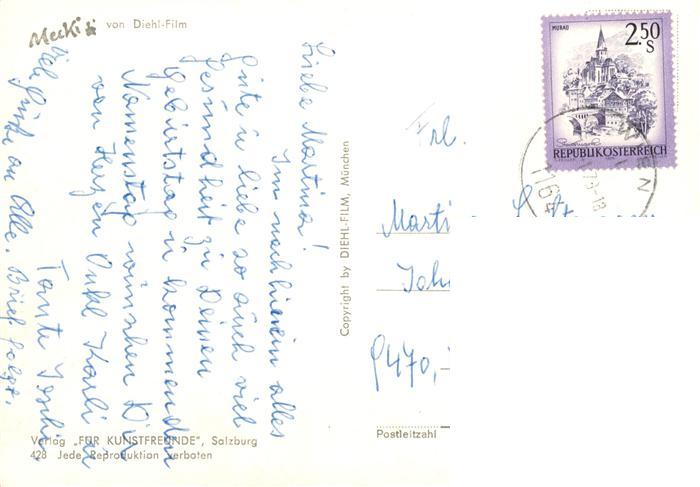 Mecki von Diehl-Film
Liebe Martina!
Im nachhinein alles
Gute u liebe so auch viel
Gesundheit zu Deinem
Geburtstag u kommenden
Namenstag wünschen Dir
von Herzen Onkl Karli u
Tante Isshi
Viele Grüße an Alle. Brief folgt.
Verlag „FÜR KUNSTFREUNDE", Salzburg
428 Jede Reproduktion verboten
Copyright by DIEHL-FILM, München
MURAU
2.50
S
REPUBLIK ÖSTERREICH
Frl.
Marti
Joh
9470,-
Postleitzahl